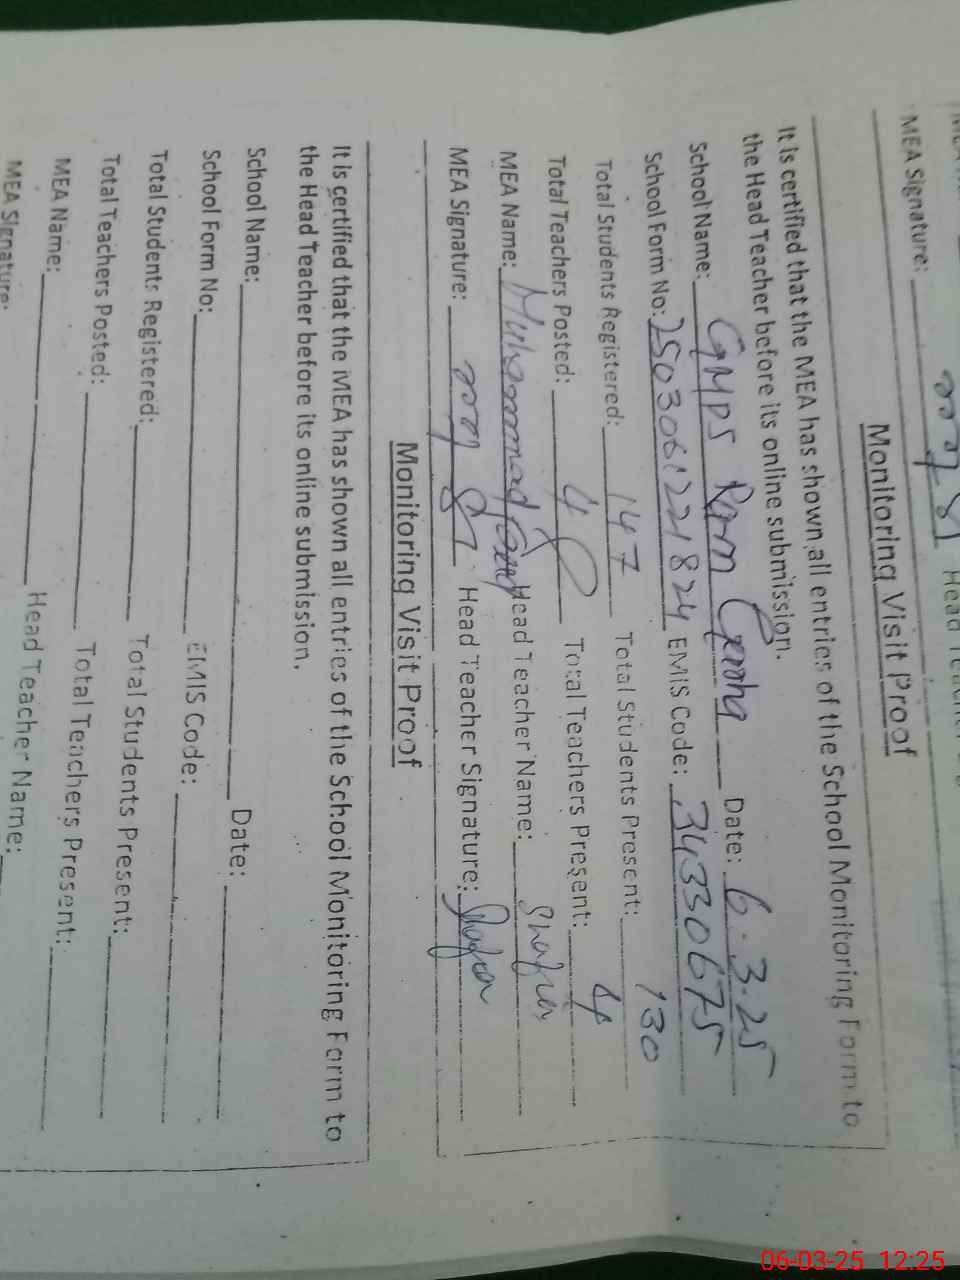 MEA Signature: Head Teacher
Monitoring Visit Proof
It is certified that the MEA has shown all entries of the School Monitoring Form to
the Head Teacher before its online submission.
School Name: GMPS Date: 6.3.25
School Form No: 2503061221824 EMIS Code: 34330675
Total Students Registered: 147 Total Students Present: 130
Total Teachers Posted: 4 Total Teachers Present: 4
MEA Name: Muhammad Head Teacher Name:
MEA Signature: Head Teacher Signature:
Monitoring Visit Proof
It is certified that the MEA has shown all entries of the School Monitoring Form to
the Head Teacher before its online submission.
School Name: Date:
School Form No: EMIS Code:
Total Students Registered: Total Students Present:
Total Teachers Posted: Total Teachers Present:
MEA Name: Head Teacher Name:
MEA Signature:
06-03-25 12:25